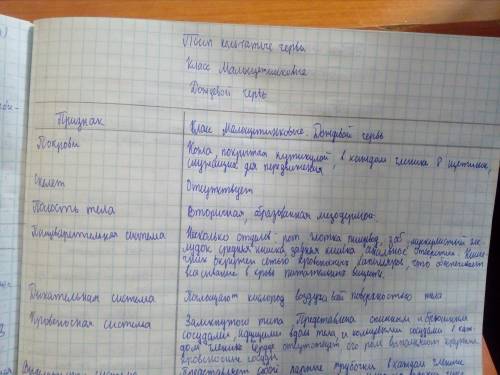 Тип кольчатые черви
Класс Малощетинковые
Дождевой червь
Признак
Класс Малощетинковые. Дождевой червь
Покровы
Кожа, покрытая кутикулой, в каждом членике 8 щетинок,
служащих для передвижения
Скелет
Отсутствует
Полость тела
Вторичная, образованная мезодермой
Пищеварительная система
Несколько отделов: рот глотка пищевод, зоб, мускулистый же-
лудок средняя кишка, задняя кишка, анальное отверстие. Кишеч-
ник окружен сетью кровеносных капилляров, что обеспечивает
всасывание в кровь питательных веществ.
Дыхательная система
Поглощают кислород воздуха всей поверхностью тела
Кровеносная система
Замкнутого типа Представлена спинным и брюшным
сосудами, идущими вдоль тела, и кольцевыми сосудами в каж-
дом членике Сердце отсутствует его роль выполняют крупные
кровеносные сосуды
система
Представляет собой парные трубочки в каждом членике